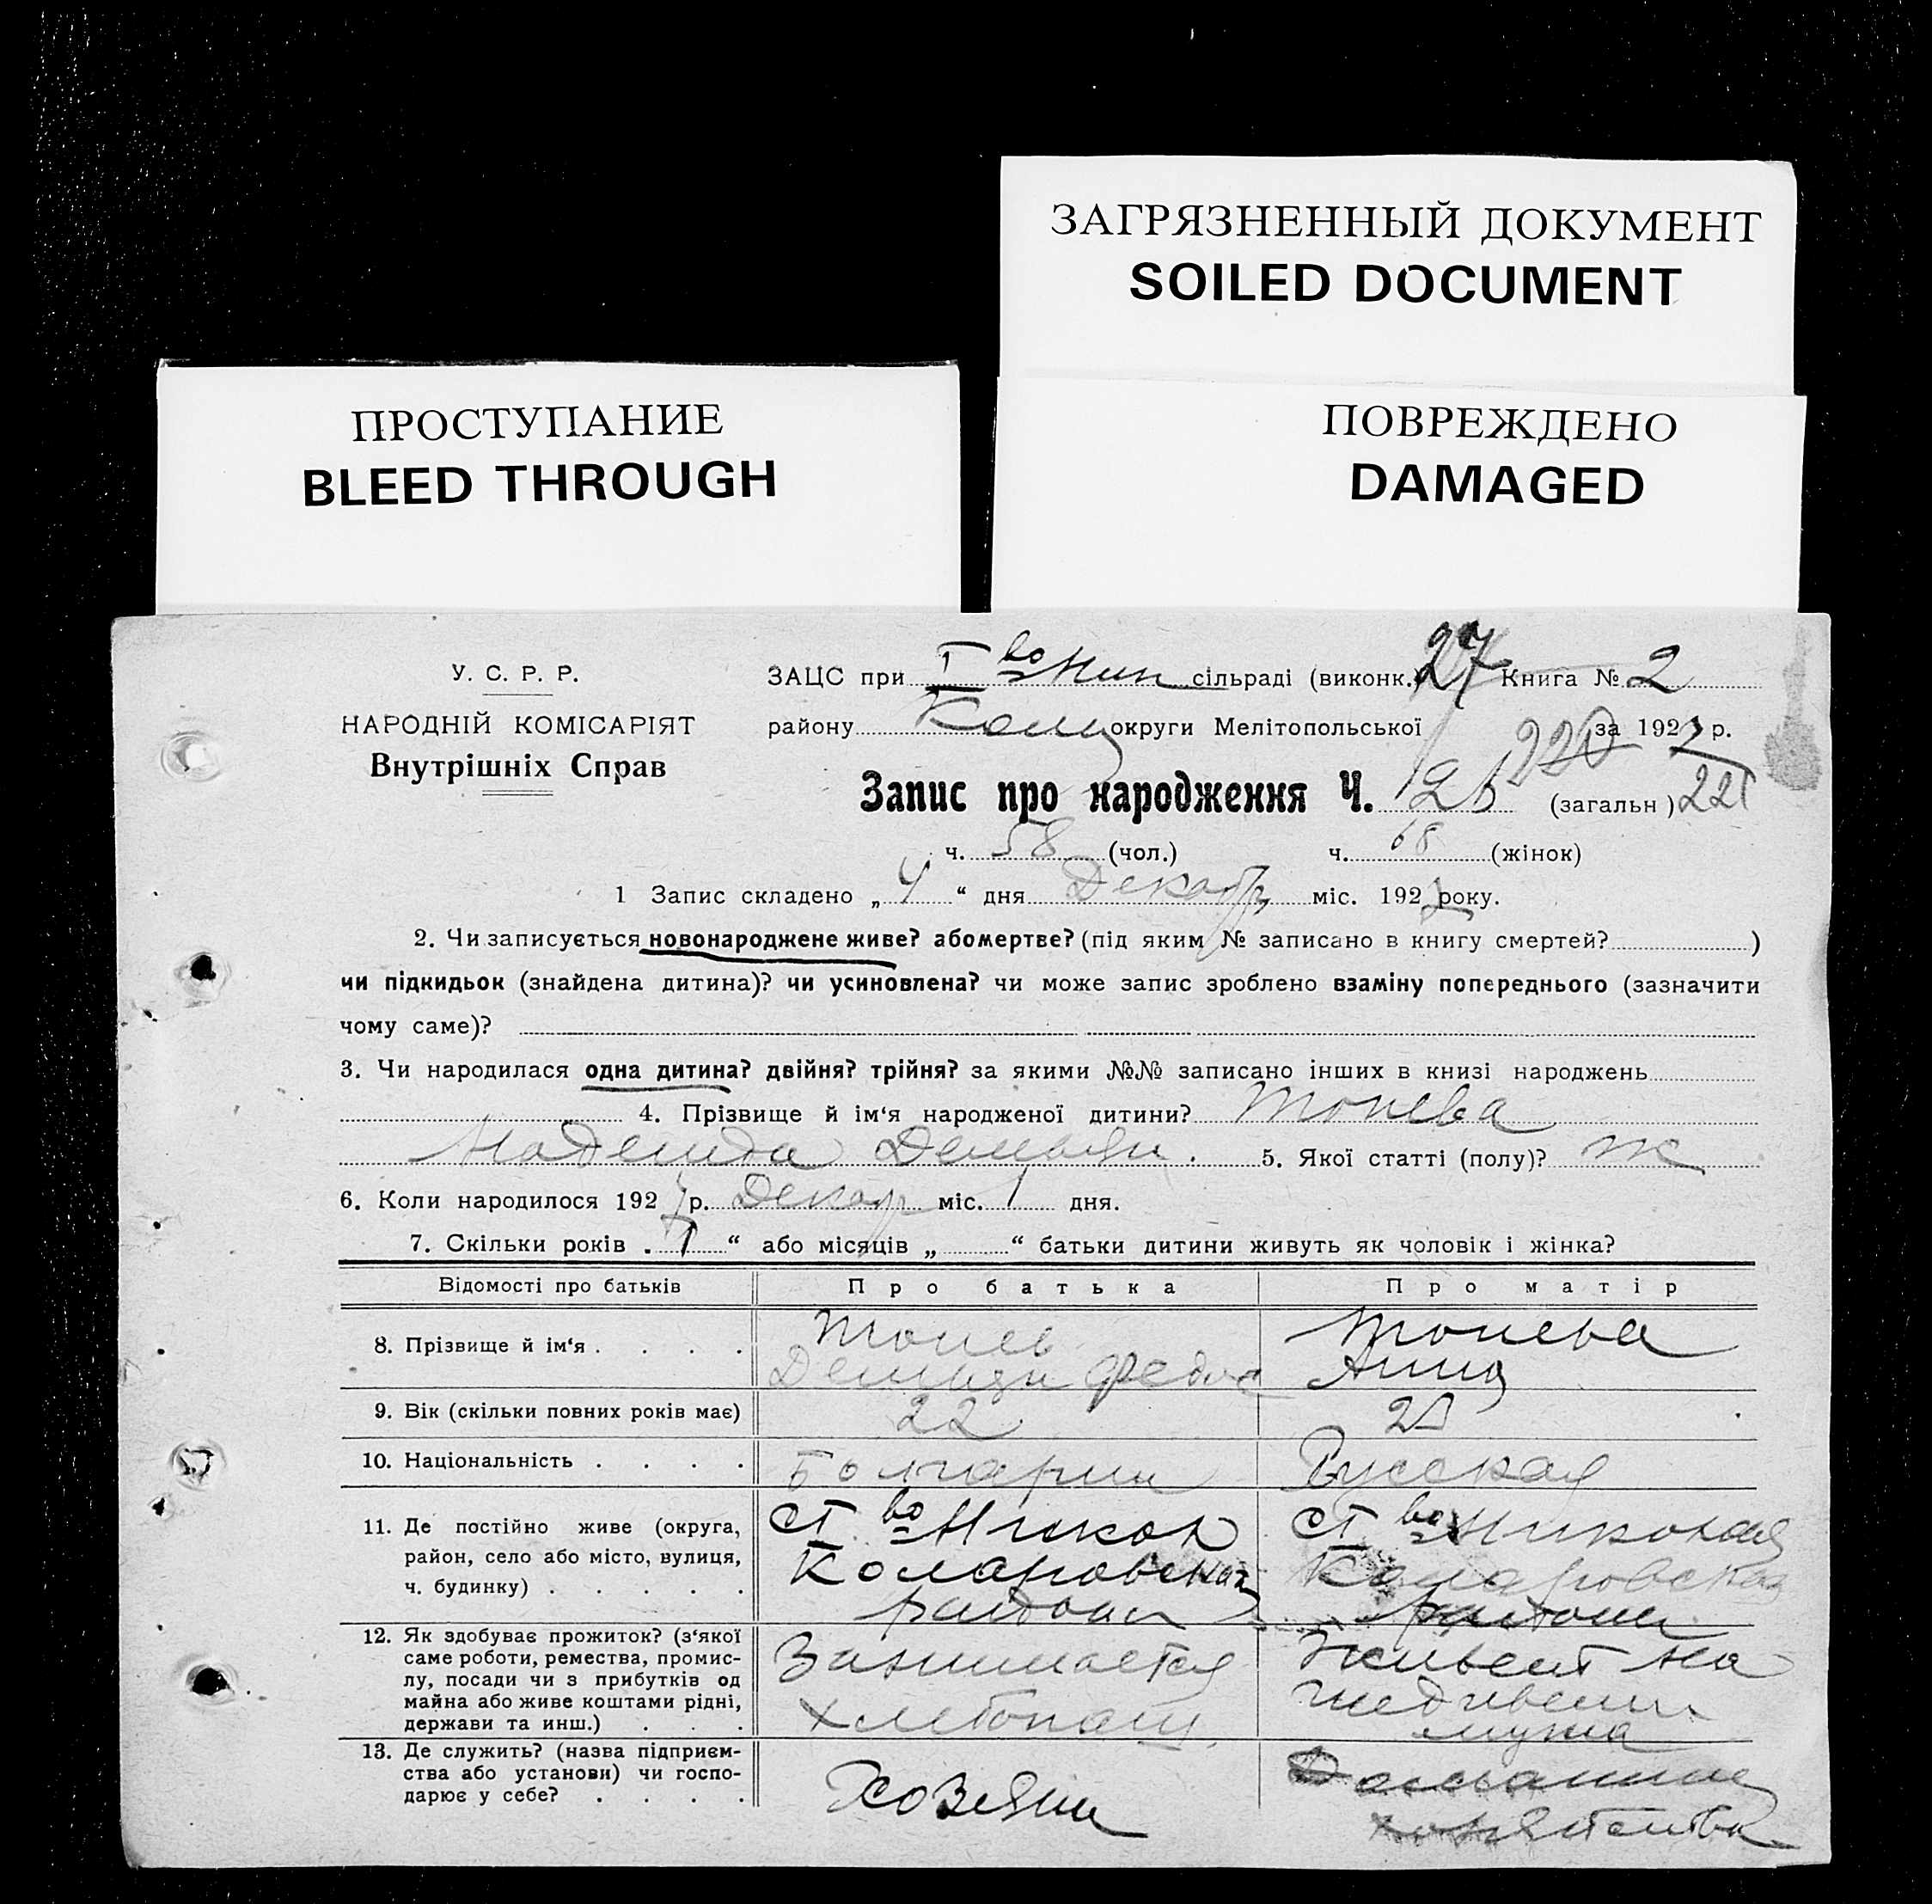 ЗАГРЯЗНЕННЫЙ ДОКУМЕНТ
SOILED DOCUMENT
ПРОСТУПАНИЕ
BLEED THROUGH
ПОВРЕЖДЕНО
DAMAGED
У. С. Р. Р.
НАРОДНІЙ КОМІСАРІЯТ
Внутрішніх Справ
ЗАЦС при I во Ник сільраді (виконк.) 27 Книга № 2
району Колар округи Мелітопольської за 192 р.
220
Запис про народження Ч. 126 (загальн) 221
ч. 58 (чол.) ч. 68 (жінок)
1 Запис складено „ 4 “ дня Декабр міс. 192 року.
2. Чи записується новонароджене живе? або мертве? (під яким № записано в книгу смертей? )
чи підкидьок (знайдена дитина)? чи усиновлена? чи може запис зроблено взаміну попереднього (зазначити
чому саме)?
3. Чи народилася одна дитина? двійня? трійня? за якими №№ записано інших в книзі народжень
4. Прізвище й ім‘я народженої дитини? Топева
Надежда Демьян. 5. Якої статті (полу)? ж
6. Коли народилося 192 р. Декабр міс. 1 дня.
7. Скільки років „ 1 “ або місяців „ “ батьки дитини живуть як чоловік і жінка?
Відомості про батьків Про батька Про матір
8. Прізвище й ім‘я . . . . Топев Топева
Демьян Федос Анна
9. Вік (скільки повних років має) 22
10. Національність . . . . Болгарин Русская
11. Де постійно живе (округа, район, село або місто, вулиця, ч. будинку) . . . . .
Ст во Никол
Коларовская
района
Ст во Николая
Коларовская
района
12. Як здобуває прожиток? (з‘якої саме роботи, ремества, промис-
лу, посади чи з прибутків од
майна або живе коштами рідні,
держави та инш.) . . .
Занимается
хлебопаш.
Живет на
иждивении
мужа
13. Де служить? (назва підприєм-
ства або установи) чи госпо-
дарює у себе? . . . .
Хозяин
Домашние
хозяйство